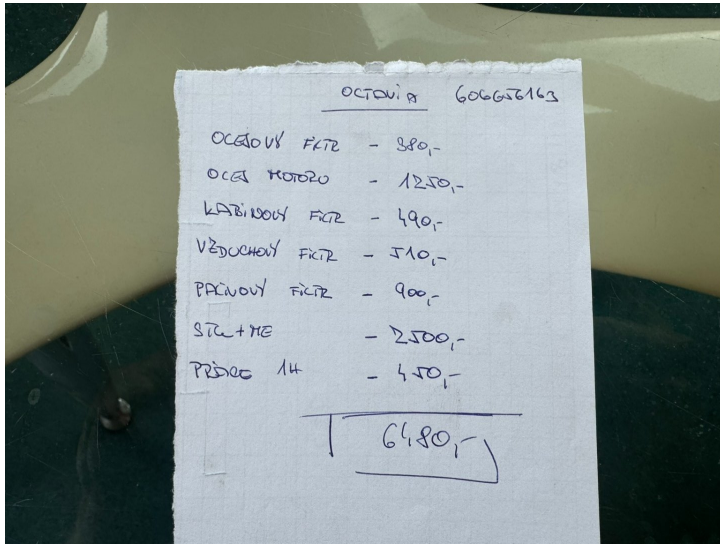 OCTAVIA 606656163
OLEJOVÝ FILTR - 380,-
OLEJ MOTORU - 1250,-
KABINOVÝ FILTR - 490,-
VZDUCHOVÝ FILTR - 510,-
PALIVOVÝ FILTR - 900,-
STK+ME - 2500,-
PRÁCE 1H - 450,-
6480,-